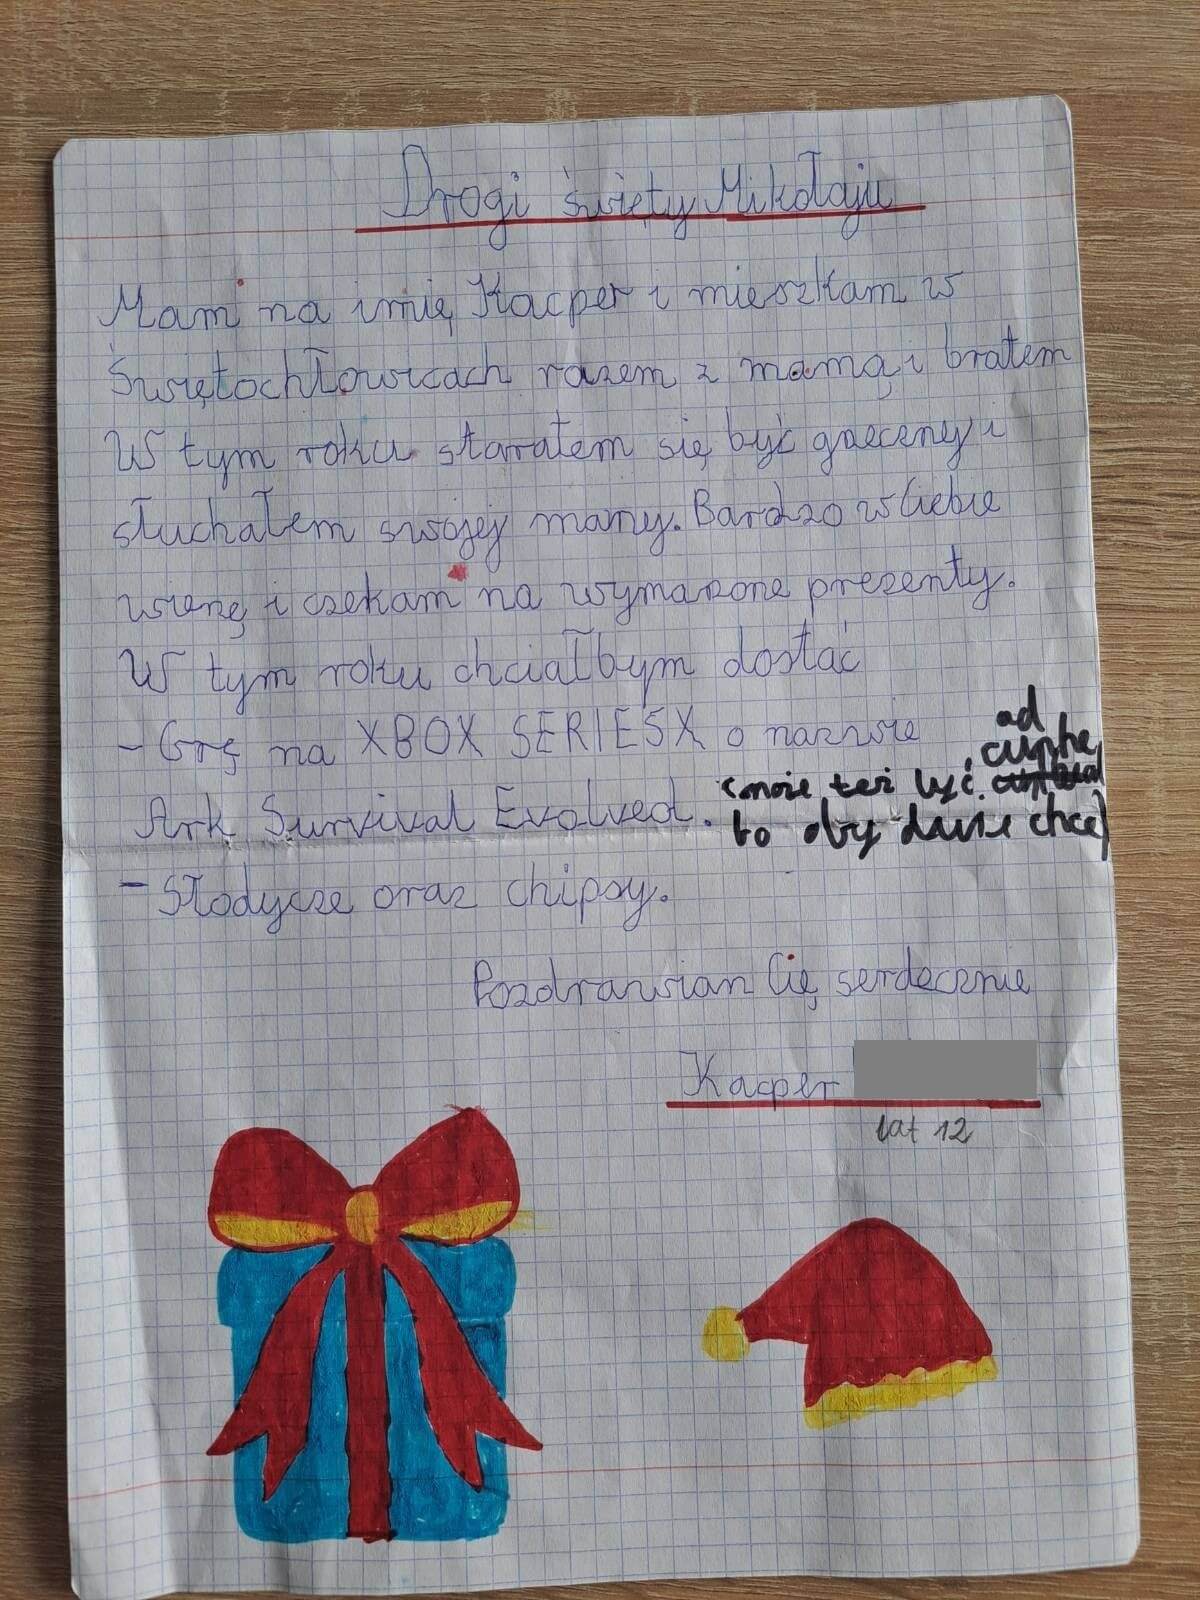 Drogi święty Mikołaju
Mam na imię Kacper i mieszkam w
Świętochłowicach razem z mamą i bratem
W tym roku starałem się być grzeczny i
słuchałem swojej mamy. Bardzo w Ciebie
wierzę i czekam na wymarzone prezenty.
W tym roku chciałbym dostać
- Grę na XBOX SERIES X o nazwie
Ark Survival Evolved. (może też być
bo oby dwie chce)
- Słodycze oraz chipsy.
Pozdrawiam Cię serdecznie
Kacper
lat 12